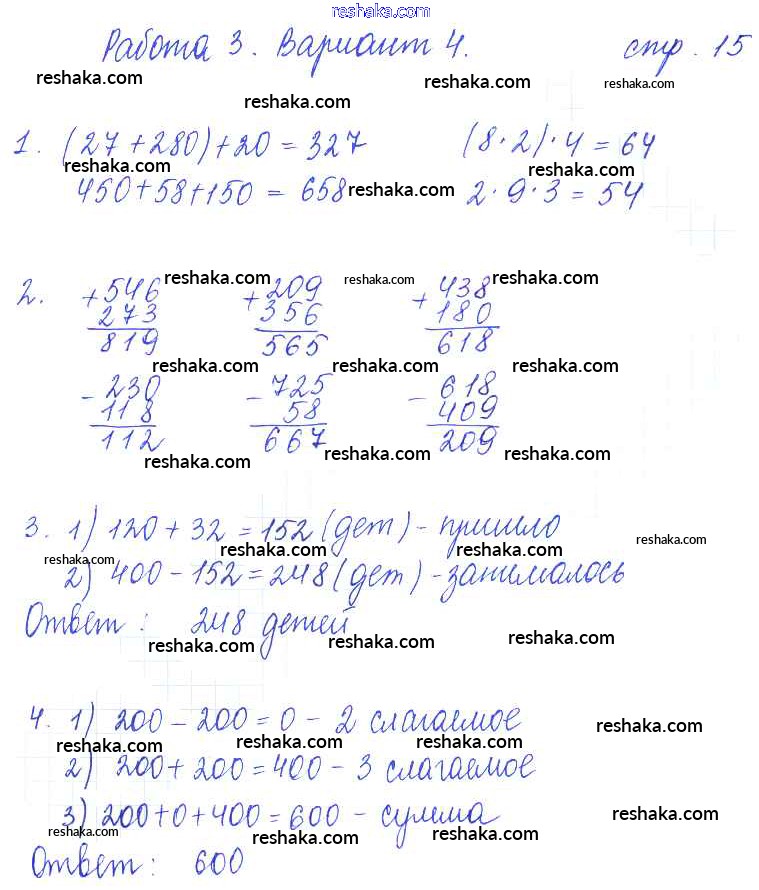 reshaka.com
Работа 3. Вариант 4. стр. 15
reshaka.com reshaka.com
reshaka.com
1. (27 + 280) + 20 = 327 (8 · 2) · 4 = 64
reshaka.com reshaka.com
450 + 58 + 150 = 658 reshaka.com 2 · 9 · 3 = 54
2. + 546 reshaka.com + 209 reshaka.com + 438 reshaka.com
273 356 180
819 565 618
reshaka.com reshaka.com reshaka.com
- 230 - 725 - 618
118 58 409
112 667 209
reshaka.com reshaka.com reshaka.com
3. 1) 120 + 32 = 152 (дет) - пришло
reshaka.com reshaka.com reshaka.com reshaka.com
2) 400 - 152 = 248 (дет) - занималось
Ответ: 248 детей
reshaka.com reshaka.com reshaka.com
4. 1) 200 - 200 = 0 - 2 слагаемое reshaka.com
reshaka.com reshaka.com reshaka.com
2) 200 + 200 = 400 - 3 слагаемое
3) 200 + 0 + 400 = 600 - сумма reshaka.com
reshaka.com reshaka.com reshaka.com
Ответ: 600